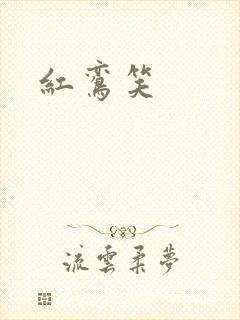 紅鸞笑
流雲柔夢